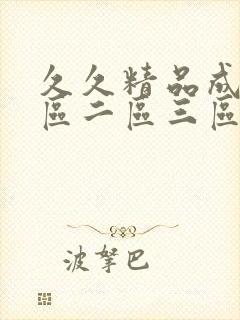 久久精品成
區二區三區
波拏巴